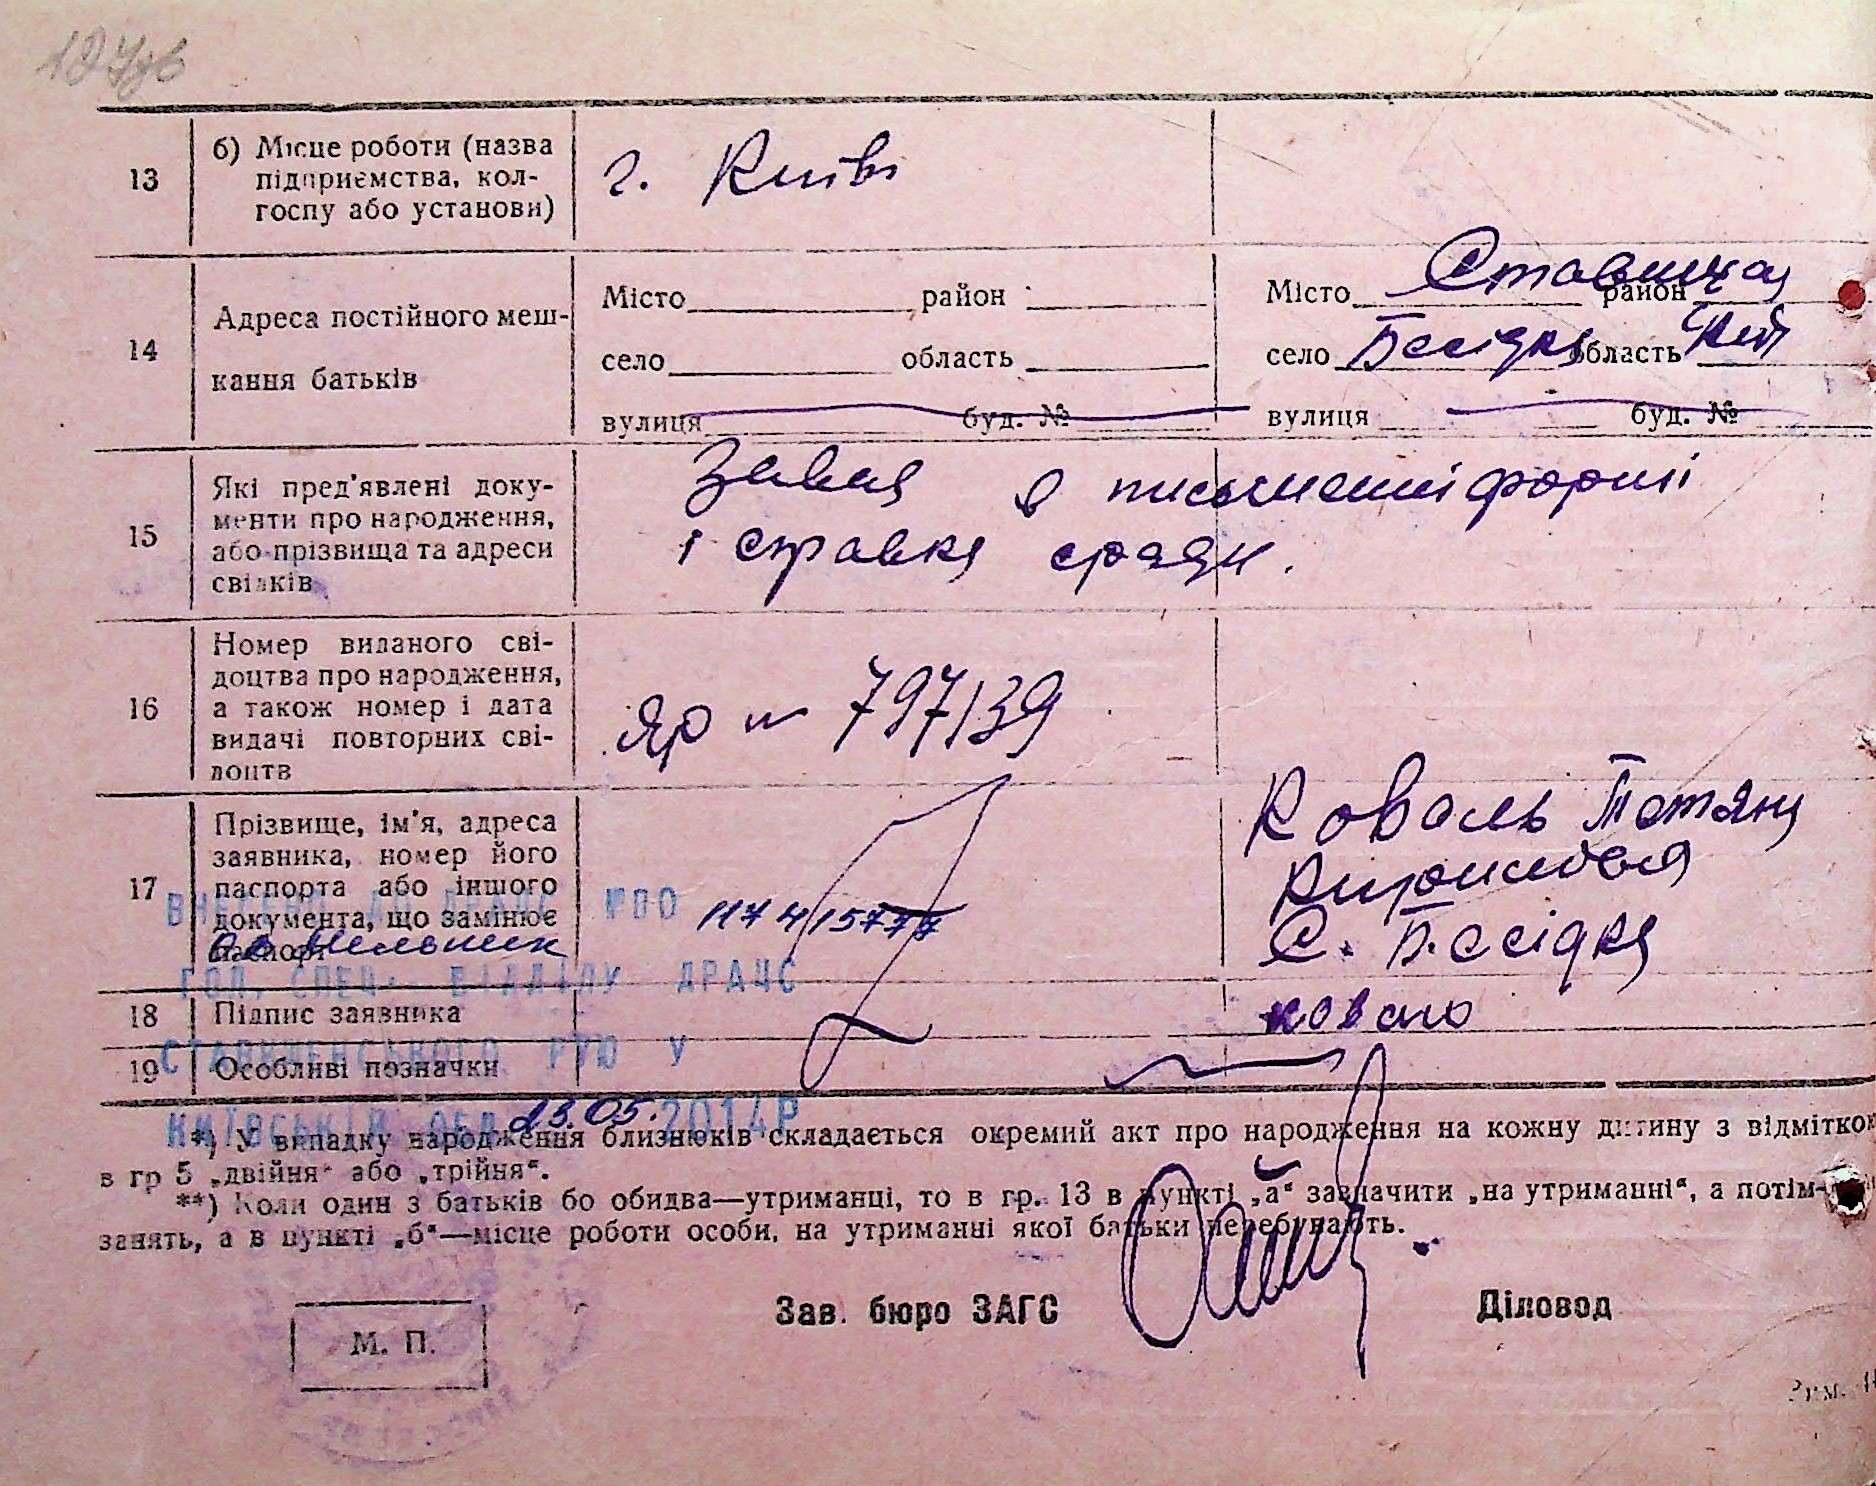 13
б) Місце роботи (назва
підприємства, кол-
госпу або установи)
г. Київ
14
Адреса постійного меш-
кання батьків
Місто район
село область
вулиця буд. №
Місто Ставища район
село Бесідка область Киї
вулиця буд. №
15
Які пред'явлені доку-
менти про народження,
або прізвища та адреси
свідків
Заява в письменні формі
і справка сради.
16
Номер виданого сві-
доцтва про народження,
а також номер і дата
видачі повторних сві-
доцтв
Яр № 797139
17
Прізвище, ім'я, адреса
заявника, номер його
паспорта або іншого
документа, що замінює
паспорт
Мельник
Коваль Тетяна
с. Бесідка
18
Підпис заявника
коваль
19
Особливі позначки
ГОЛ. СПЕЦ. ВІДДІЛУ ДРАЦС
СТАВИЩЕНСЬКОГО РУЮ У
КИЇВСЬКІЙ ОБЛ 23.05.2014Р
*) У випадку народження близнюків складається окремий акт про народження на кожну дитину з відміткою
в гр 5 „двійня“ або „трійня“.
**) Коли один з батьків бо обидва—утриманці, то в гр. 13 в пункті „а“ зазначити „на утриманні“, а потім-
занять, а в пункті „б“—місце роботи особи, на утриманні якої батьки перебувають.
Зав. бюро ЗАГС
Діловод
М. П.